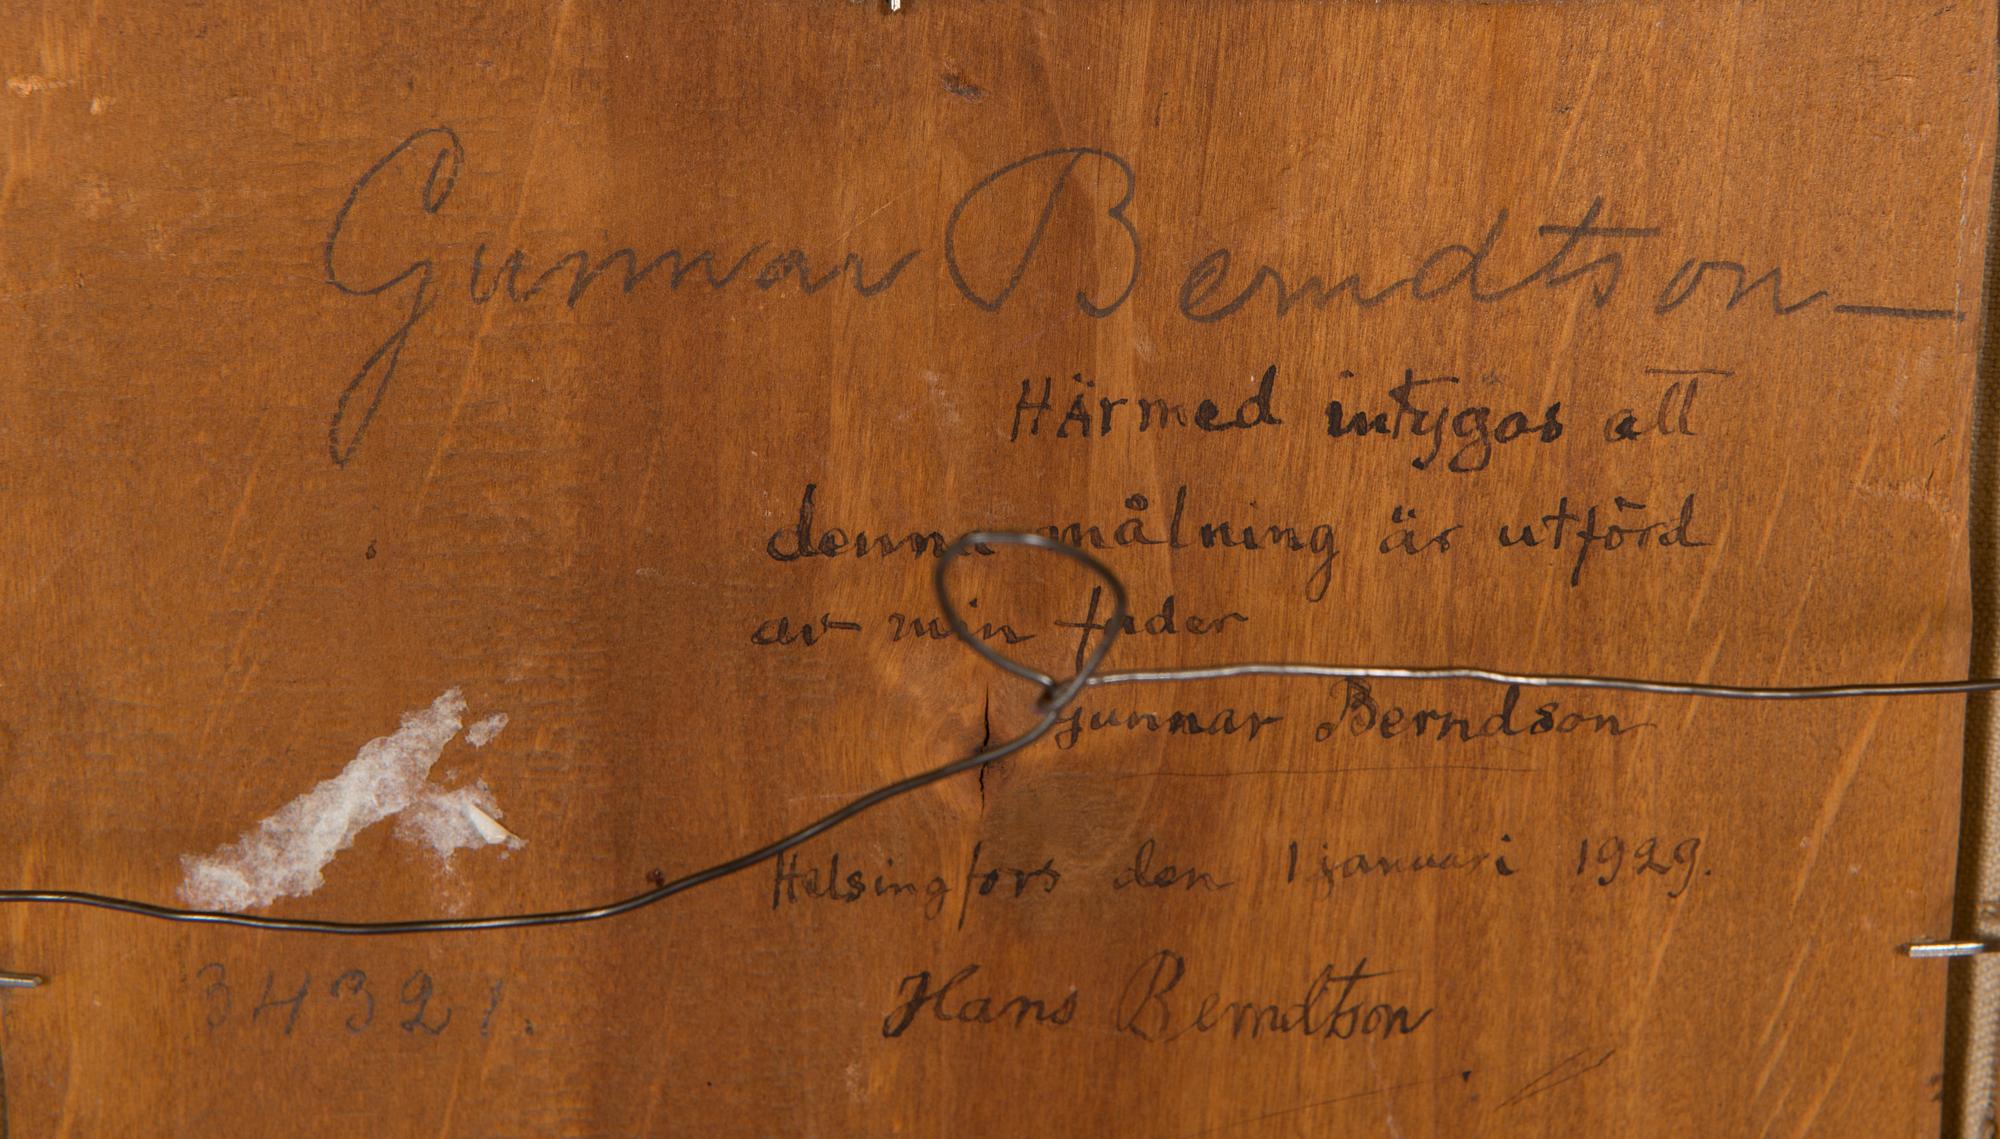 Gunnar Berndtson
Härmed intygas att
denna målning är utförd
av min fader
Gunnar Berndson
Helsingfors den 1 januari 1929.
34321.
Hans Berndtson